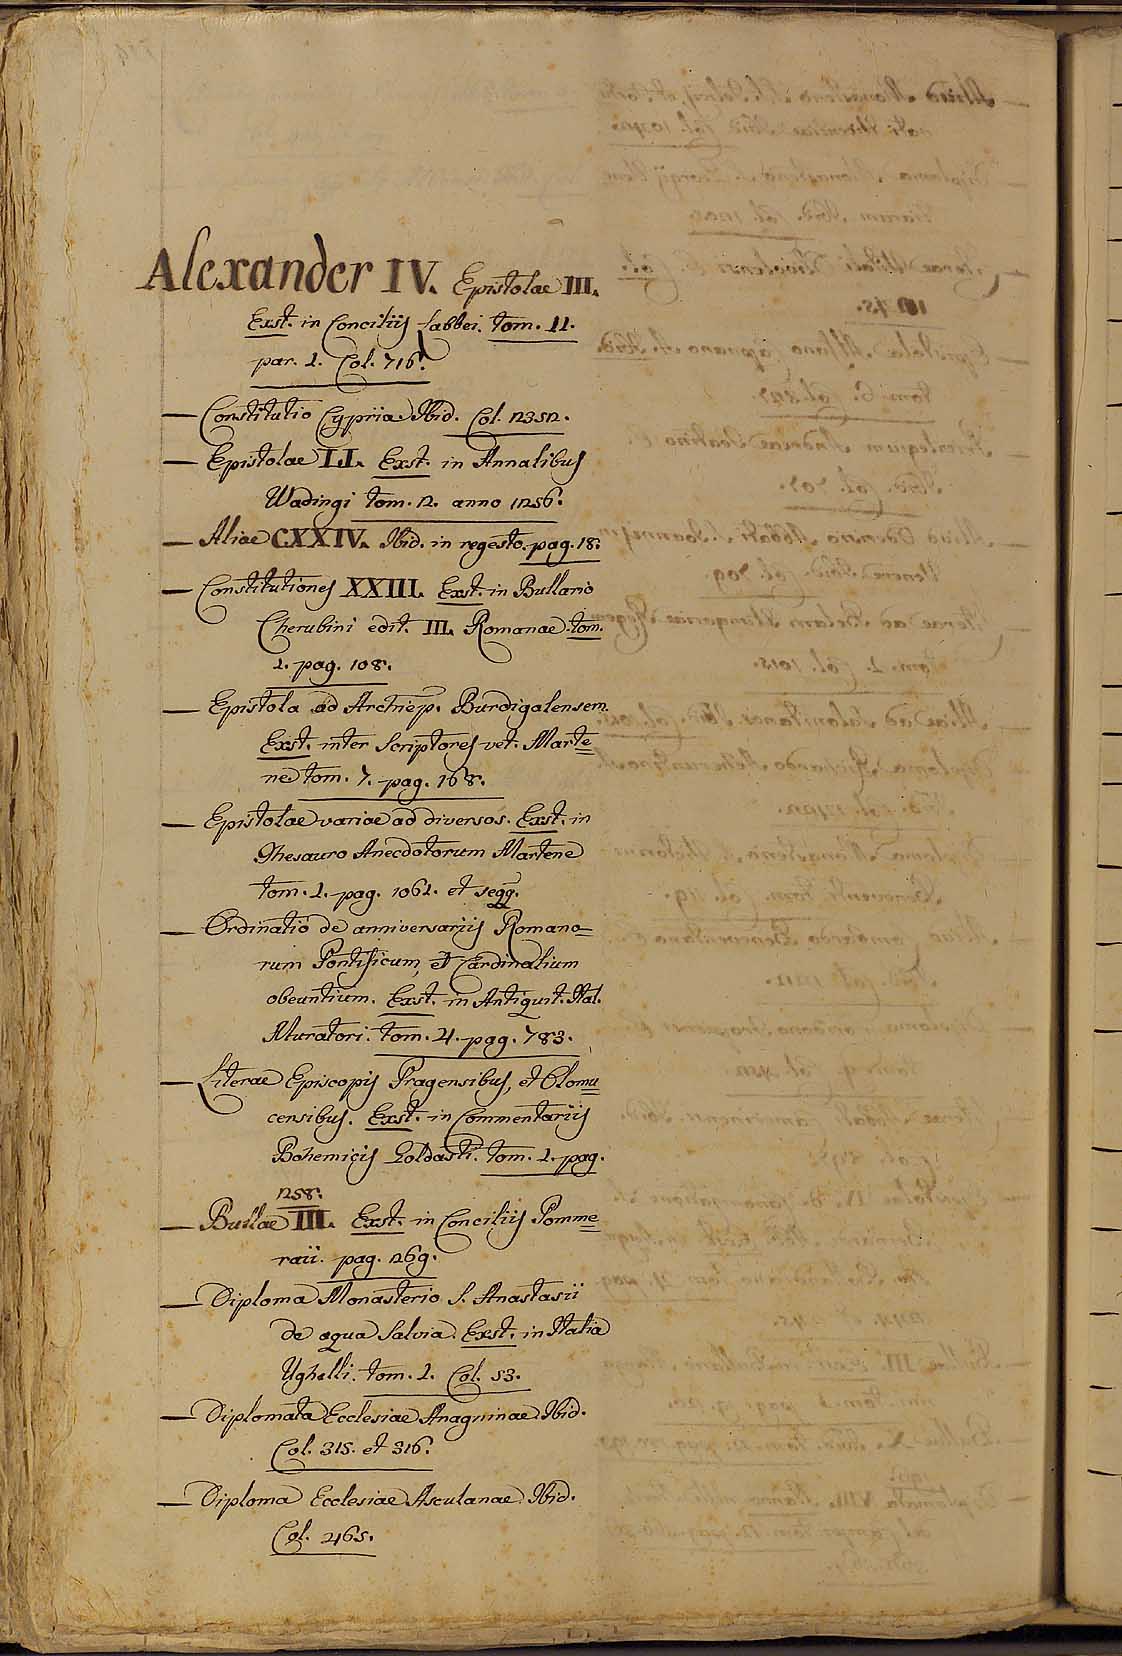 Alexander IV. Epistolae III.
Exst. in Conciliis Labbei. tom. 11.
par. 1. Col. 716.
— Constitutio Cypria Ibid. Col. 2352.
— Epistolae LI. Exst. in Annalibus
Wadingi tom. 2. anno 1256.
— Aliae CXXIV. Ibid. in regesto. pag. 18.
— Constitutiones XXIII. Exst. in Bullario
Cherubini edit. III. Romanae. tom.
1. pag. 108.
— Epistola ad Archiep. Burdigalensem.
Exst. inter Scriptores vet. Marte=
ne tom. 7. pag. 168.
— Epistolae variae ad diversos. Exst. in
Thesauro Anecdotorum Martene
tom. 1. pag. 1061. et seqq.
— Ordinatio de anniversariis Romano=
rum Pontificum, et Cardinalium
obeuntium. Exst. in Antiquit. Ital.
Muratori. tom. 4. pag. 783.
— Literae Episcopis Pragensibus, et Olomu=
censibus. Exst. in Commentariis
Bohemicis Goldasti. tom. 1. pag.
258.
— Bullae III. Exst. in Conciliis Pomme=
raii. pag. 269.
— Diploma Monasterio S. Anastasii
de aqua Salvia. Exst. in Italia
Ughelli. tom. 1. Col. 53.
— Diplomata Ecclesiae Anagninae. Ibid.
Col. 315. et 316.
— Diploma Ecclesiae Asculanae. Ibid.
Col. 465.